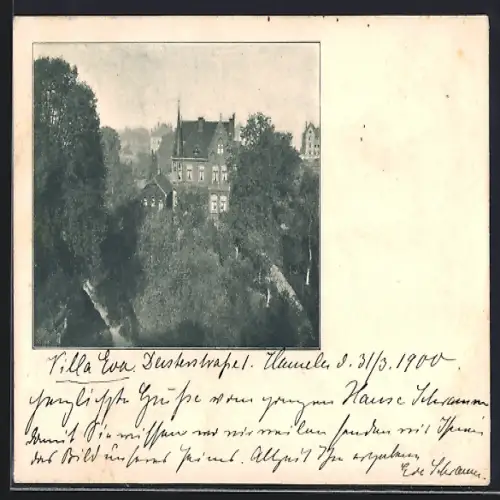 Villa Eva. Deisterstraße 1. Hameln d. 31/3. 1900.
Herzlichste Grüße vom ganzen Hause Schramm
damit Sie wissen wo wir weilen senden wir Ihnen
das Bild unseres Heims. Allzeit Ihr ergebener
Schramm